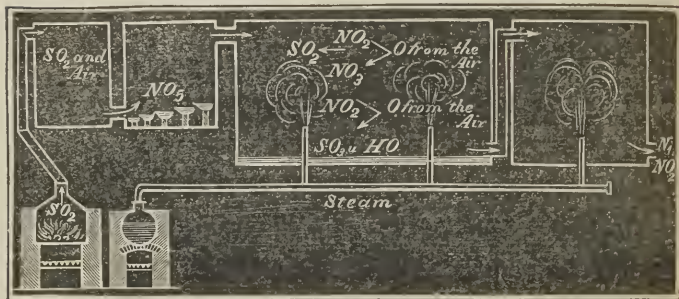 SO2 and
Air
NO5
NO2
SO2
O from the
Air
NO3
NO2
O from the
Air
SO3 u HO
N,
NO2
Steam
SO2